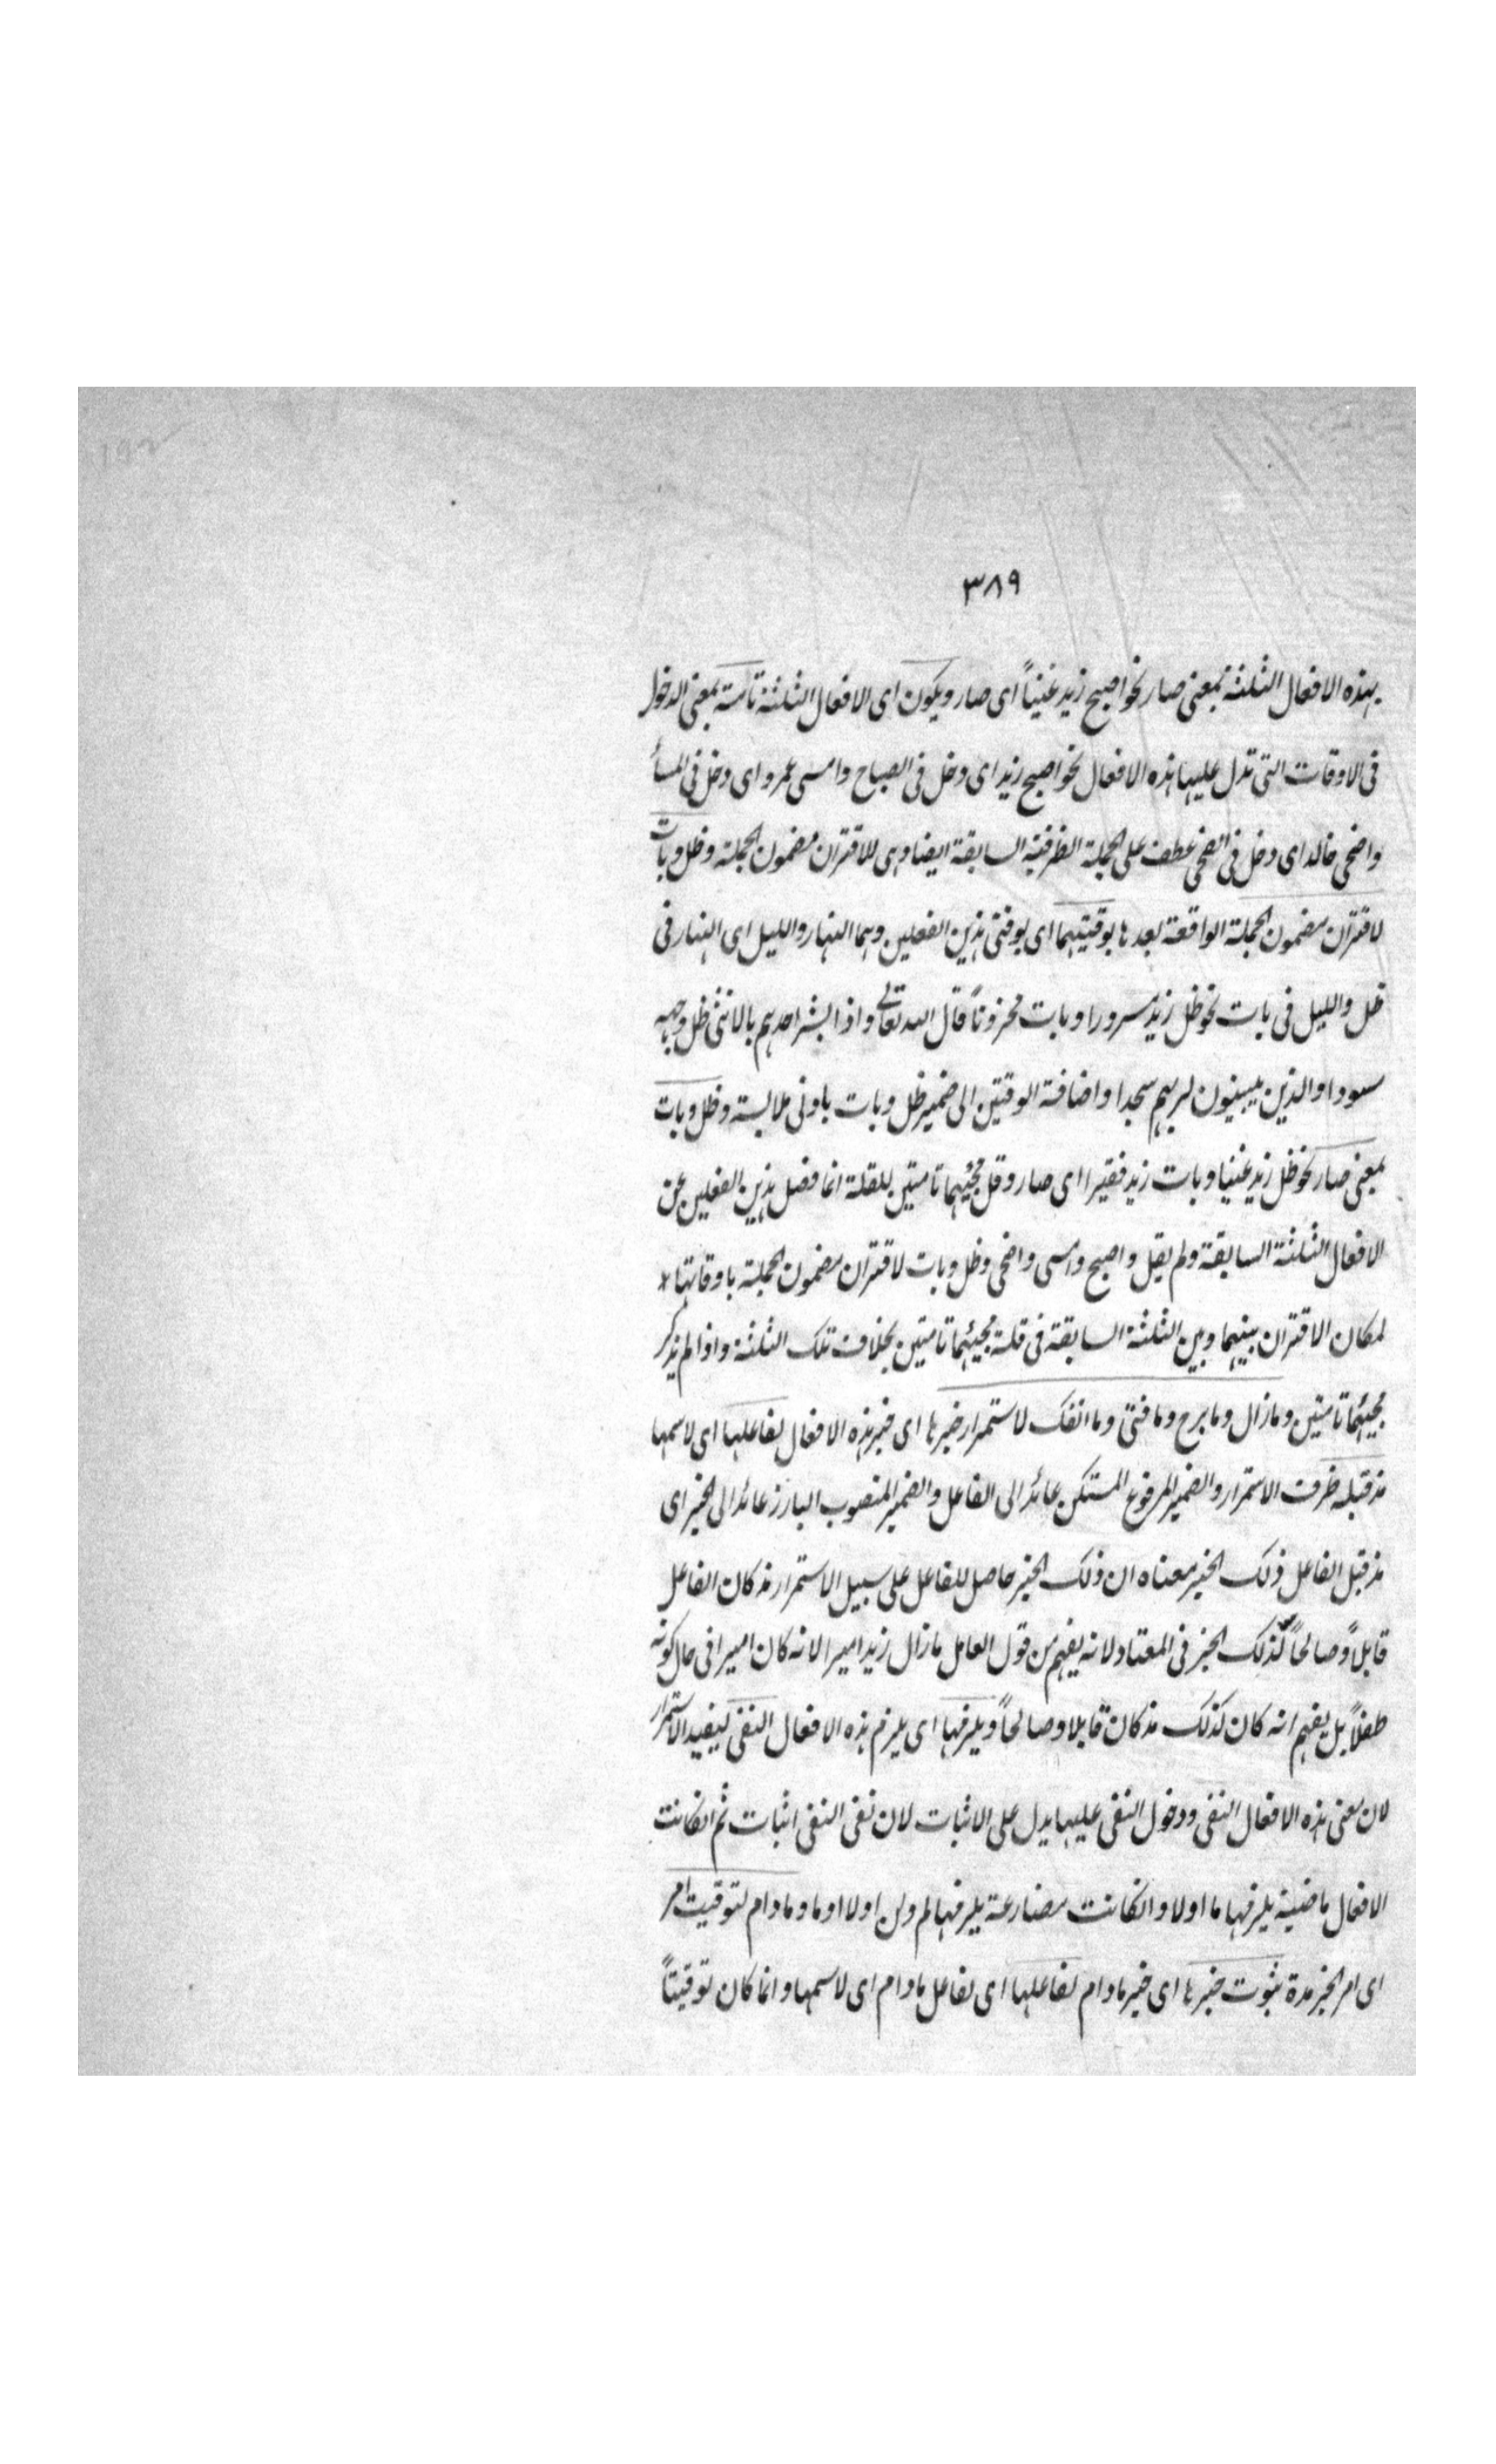 ٣٨٩
بهذه الافعال الثلثة بمعنى صار نحو اصبح زيد غنياً اى صار ويكون اى الافعال الثلثة تامة بمعنى الدخول
فى الاوقات التى تدل عليها هذه الافعال نحو اصبح زيد اى دخل فى الصباح وامسى عمرو اى دخل فى المسأ
واضحى خالد اى دخل فى الضحى عطف على الجملة الظرفية السابقة ايضا وهى للاقتران مضمون الجملة وظل وبات
لاقتران مضمون الجملة الواقعة بعدها بوقتيهما اى بوقتى هذين الفعلين وهما النهار والليل اى النهار فى
ظل والليل فى بات نحو ظل زيد مسرورا وبات محزوناً قال الله تعالى واذا بشر احدهم بالانثى ظل وجهه
مسودا والذين يبيتون لربهم سجدا واضافة الوقتين الى ضمير ظل وبات بادنى ملابسة وظل وبات
بمعنى صار نحو ظل زيد غنيا وبات زيد فقيرا اى صار وقل مجيئهما تامتين للقلة انما فصل هذين الفعلين عن
الافعال الثلثة السابقة ولم يقل واصبح وامسى واضحى وظل وبات لاقتران مضمون الجملة باوقاتها *
لمكان الاقتران بينهما وبين الثلثة السابقة فى قلة مجيئهما تامتين بخلاف تلك الثلثة واذا لم يذكر
مجيئهما تامتين ومازال وما برح وما فتئ وما انفك لاستمرار خبرها اى خبر هذه الافعال لفاعلها اى لاسمها
مذ قبله ظرف الاستمرار والضمير المرفوع المستكن عائد الى الفاعل والضمير المنصوب البارز عائد الى الخبر اى
مذ قبل الفاعل ذلك الخبر معناه ان ذلك الخبر حاصل للفاعل على سبيل الاستمرار مذ كان الفاعل
قابلاً وصالحاً لذلك الخبر فى المعتاد لانه يفهم من قول العامل مازال زيد اميرا لانه كان اميرا فى حال كونه
طفلاً بل يفهم انه كان كذلك مذ كان قابلا وصالحاً ويلزمها اى يلزم هذه الافعال النفى ليفيد الاستمرار
لان معنى هذه الافعال النفى ودخول النفى عليها يدل على الاثبات لان نفى النفى اثبات ثم انكانت
الافعال ماضية يلزمها ما اولا وانكانت مضارعة يلزمها لم ولن او لا او ما ومادام لتوقيت امر
اى امر الخبر مدة ثبوت خبرها اى خبر مادام لفاعلها اى لفاعل مادام اى لاسمها وانما كان توقيتاً